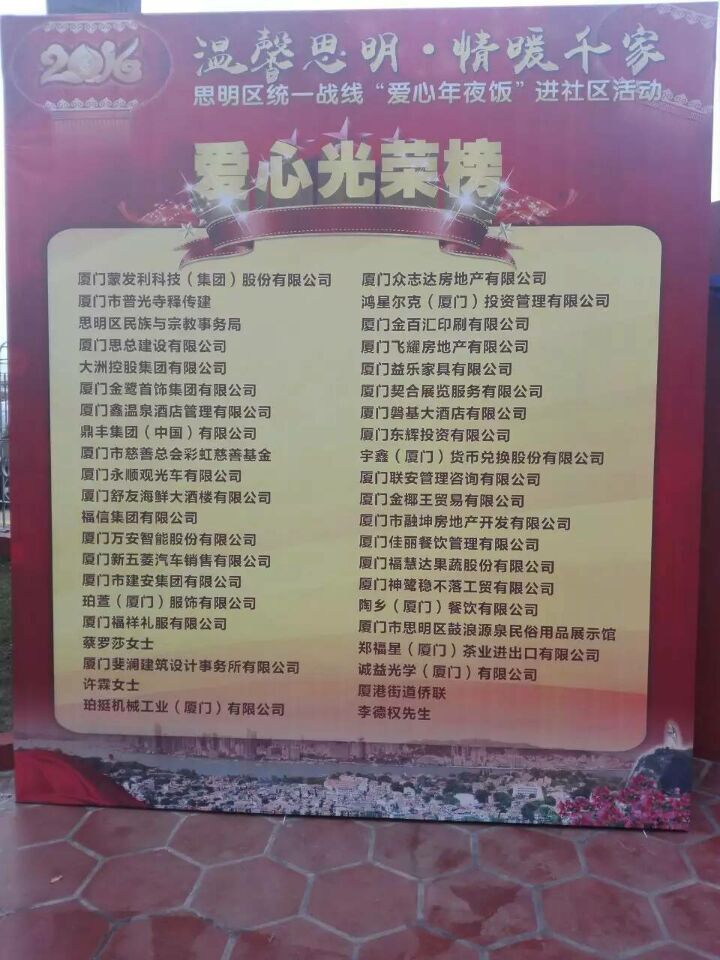 2016
温馨思明·情暖千家
思明区统一战线“爱心年夜饭”进社区活动
爱心光荣榜
厦门蒙发利科技（集团）股份有限公司
厦门市普光寺释传建
思明区民族与宗教事务局
厦门思总建设有限公司
大洲控股集团有限公司
厦门金鹭首饰集团有限公司
厦门鑫温泉酒店管理有限公司
鼎丰集团（中国）有限公司
厦门市慈善总会彩虹慈善基金
厦门永顺观光车有限公司
厦门舒友海鲜大酒楼有限公司
福信集团有限公司
厦门万安智能股份有限公司
厦门新五菱汽车销售有限公司
厦门市建安集团有限公司
珀萱（厦门）服饰有限公司
厦门福祥礼服有限公司
蔡罗莎女士
厦门斐澜建筑设计事务所有限公司
许霖女士
珀挺机械工业（厦门）有限公司
厦门众志达房地产有限公司
鸿星尔克（厦门）投资管理有限公司
厦门金百汇印刷有限公司
厦门飞耀房地产有限公司
厦门益乐家具有限公司
厦门契合展览服务有限公司
厦门磐基大酒店有限公司
厦门东辉投资有限公司
宇鑫（厦门）货币兑换股份有限公司
厦门联安管理咨询有限公司
厦门金椰王贸易有限公司
厦门市融坤房地产开发有限公司
厦门佳丽餐饮管理有限公司
厦门福慧达果蔬股份有限公司
厦门神鹭稳不落工贸有限公司
陶乡（厦门）餐饮有限公司
厦门市思明区鼓浪源泉民俗用品展示馆
郑福星（厦门）茶业进出口有限公司
诚益光学（厦门）有限公司
厦港街道侨联
李德权先生